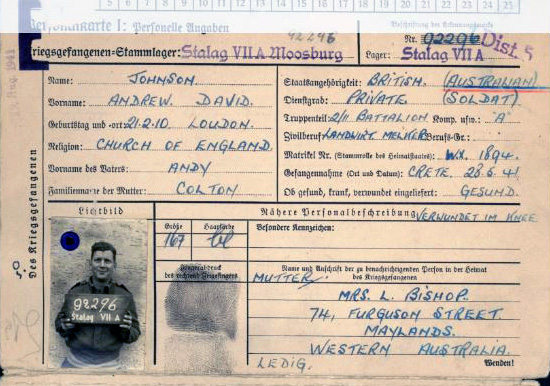 5 6 7 8 9 10 11 12 13 14 15 16 17 18 19 20 21 22 23 24 25
Personalkarte I: Personelle Angaben
Beschriftung der Erkennungsmarke
92296
Nr. 92296 Dist. 5
Kriegsgefangenen-Stammlager: Stalag VII A Moosburg
Lager: Stalag VII A
Des Kriegsgefangenen
Name: JOHNSON.
Vorname: ANDREW. DAVID.
Geburtstag und -ort: 21.2.10. LOUDON.
Religion: CHURCH OF ENGLAND
Vorname des Vaters: ANDY
Familienname der Mutter: COLTON
Staatsangehörigkeit: BRITISH. (AUSTRALIAN)
Dienstgrad: PRIVATE. (SOLDAT)
Truppenteil: 2/11 BATTALION Komp. usw.: "A"
Zivilberuf: LANDWIRT MELKER Berufs-Gr.:
Matrikel Nr. (Stammrolle des Heimatstaates): WX. 1894.
Gefangennahme (Ort und Datum): CRETE. 28.6.41.
Ob gesund, krank, verwundet eingeliefert: GESUND.
Lichtbild
Nähere Personalbeschreibung VERWUNDET IM KNEE
Größe Haarfarbe
167 bl
Besondere Kennzeichen:
92296
Stalag VII A
Fingerabdruck
des rechten Zeigefingers
Name und Anschrift der zu benachrichtigenden Person in der Heimat
des Kriegsgefangenen
MUTTER
MRS. L. BISHOP.
74, FURGUSON STREET.
MAYLANDS.
WESTERN AUSTRALIA.
LEDIG.
Wenden!